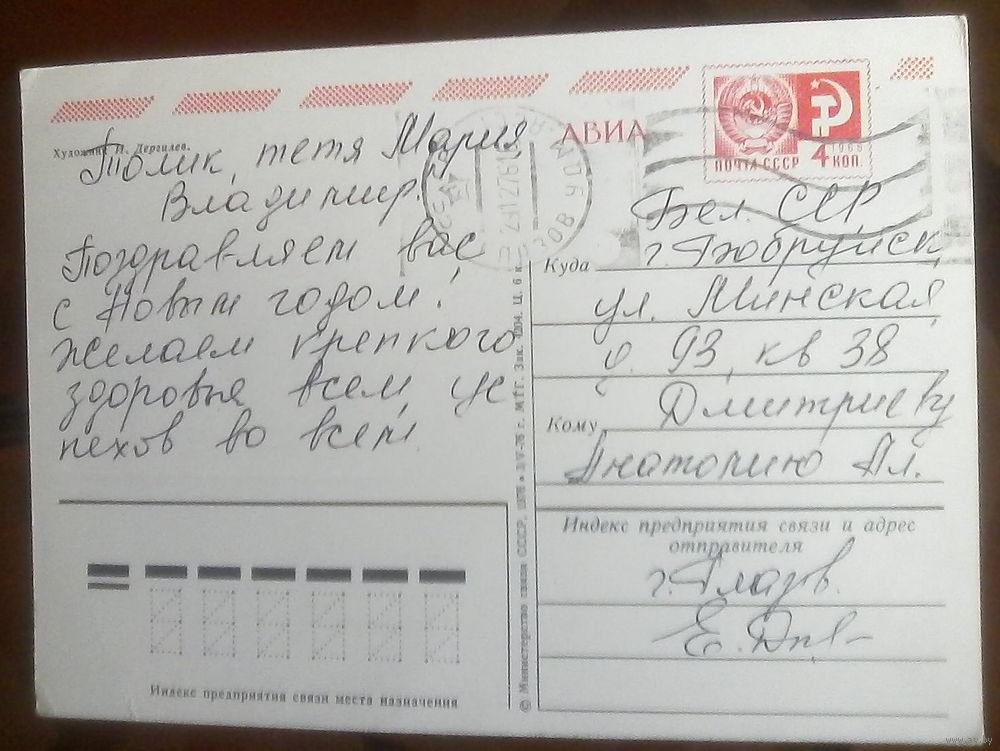 Художник И. Дергилев.
АВИА
ПОЧТА СССР 4 КОП.
1966
Толик, тетя Мария
Владимир!
Поздравляем вас
с Новым годом!
Желаем крепкого
здоровья всем, ус
пехов во всем
Куда
Бел. ССР
г. Бобруйск
ул. Минская,
д. 93, кв 38
Кому
Дмитриеву
Анатолию Пл.
Индекс предприятия связи и адрес
отправителя
г. Глазов
Индекс предприятия связи места назначения
© Министерство связи СССР, 1976 г. МПГ. Зак. Ц. 6 к.
www.ay.by